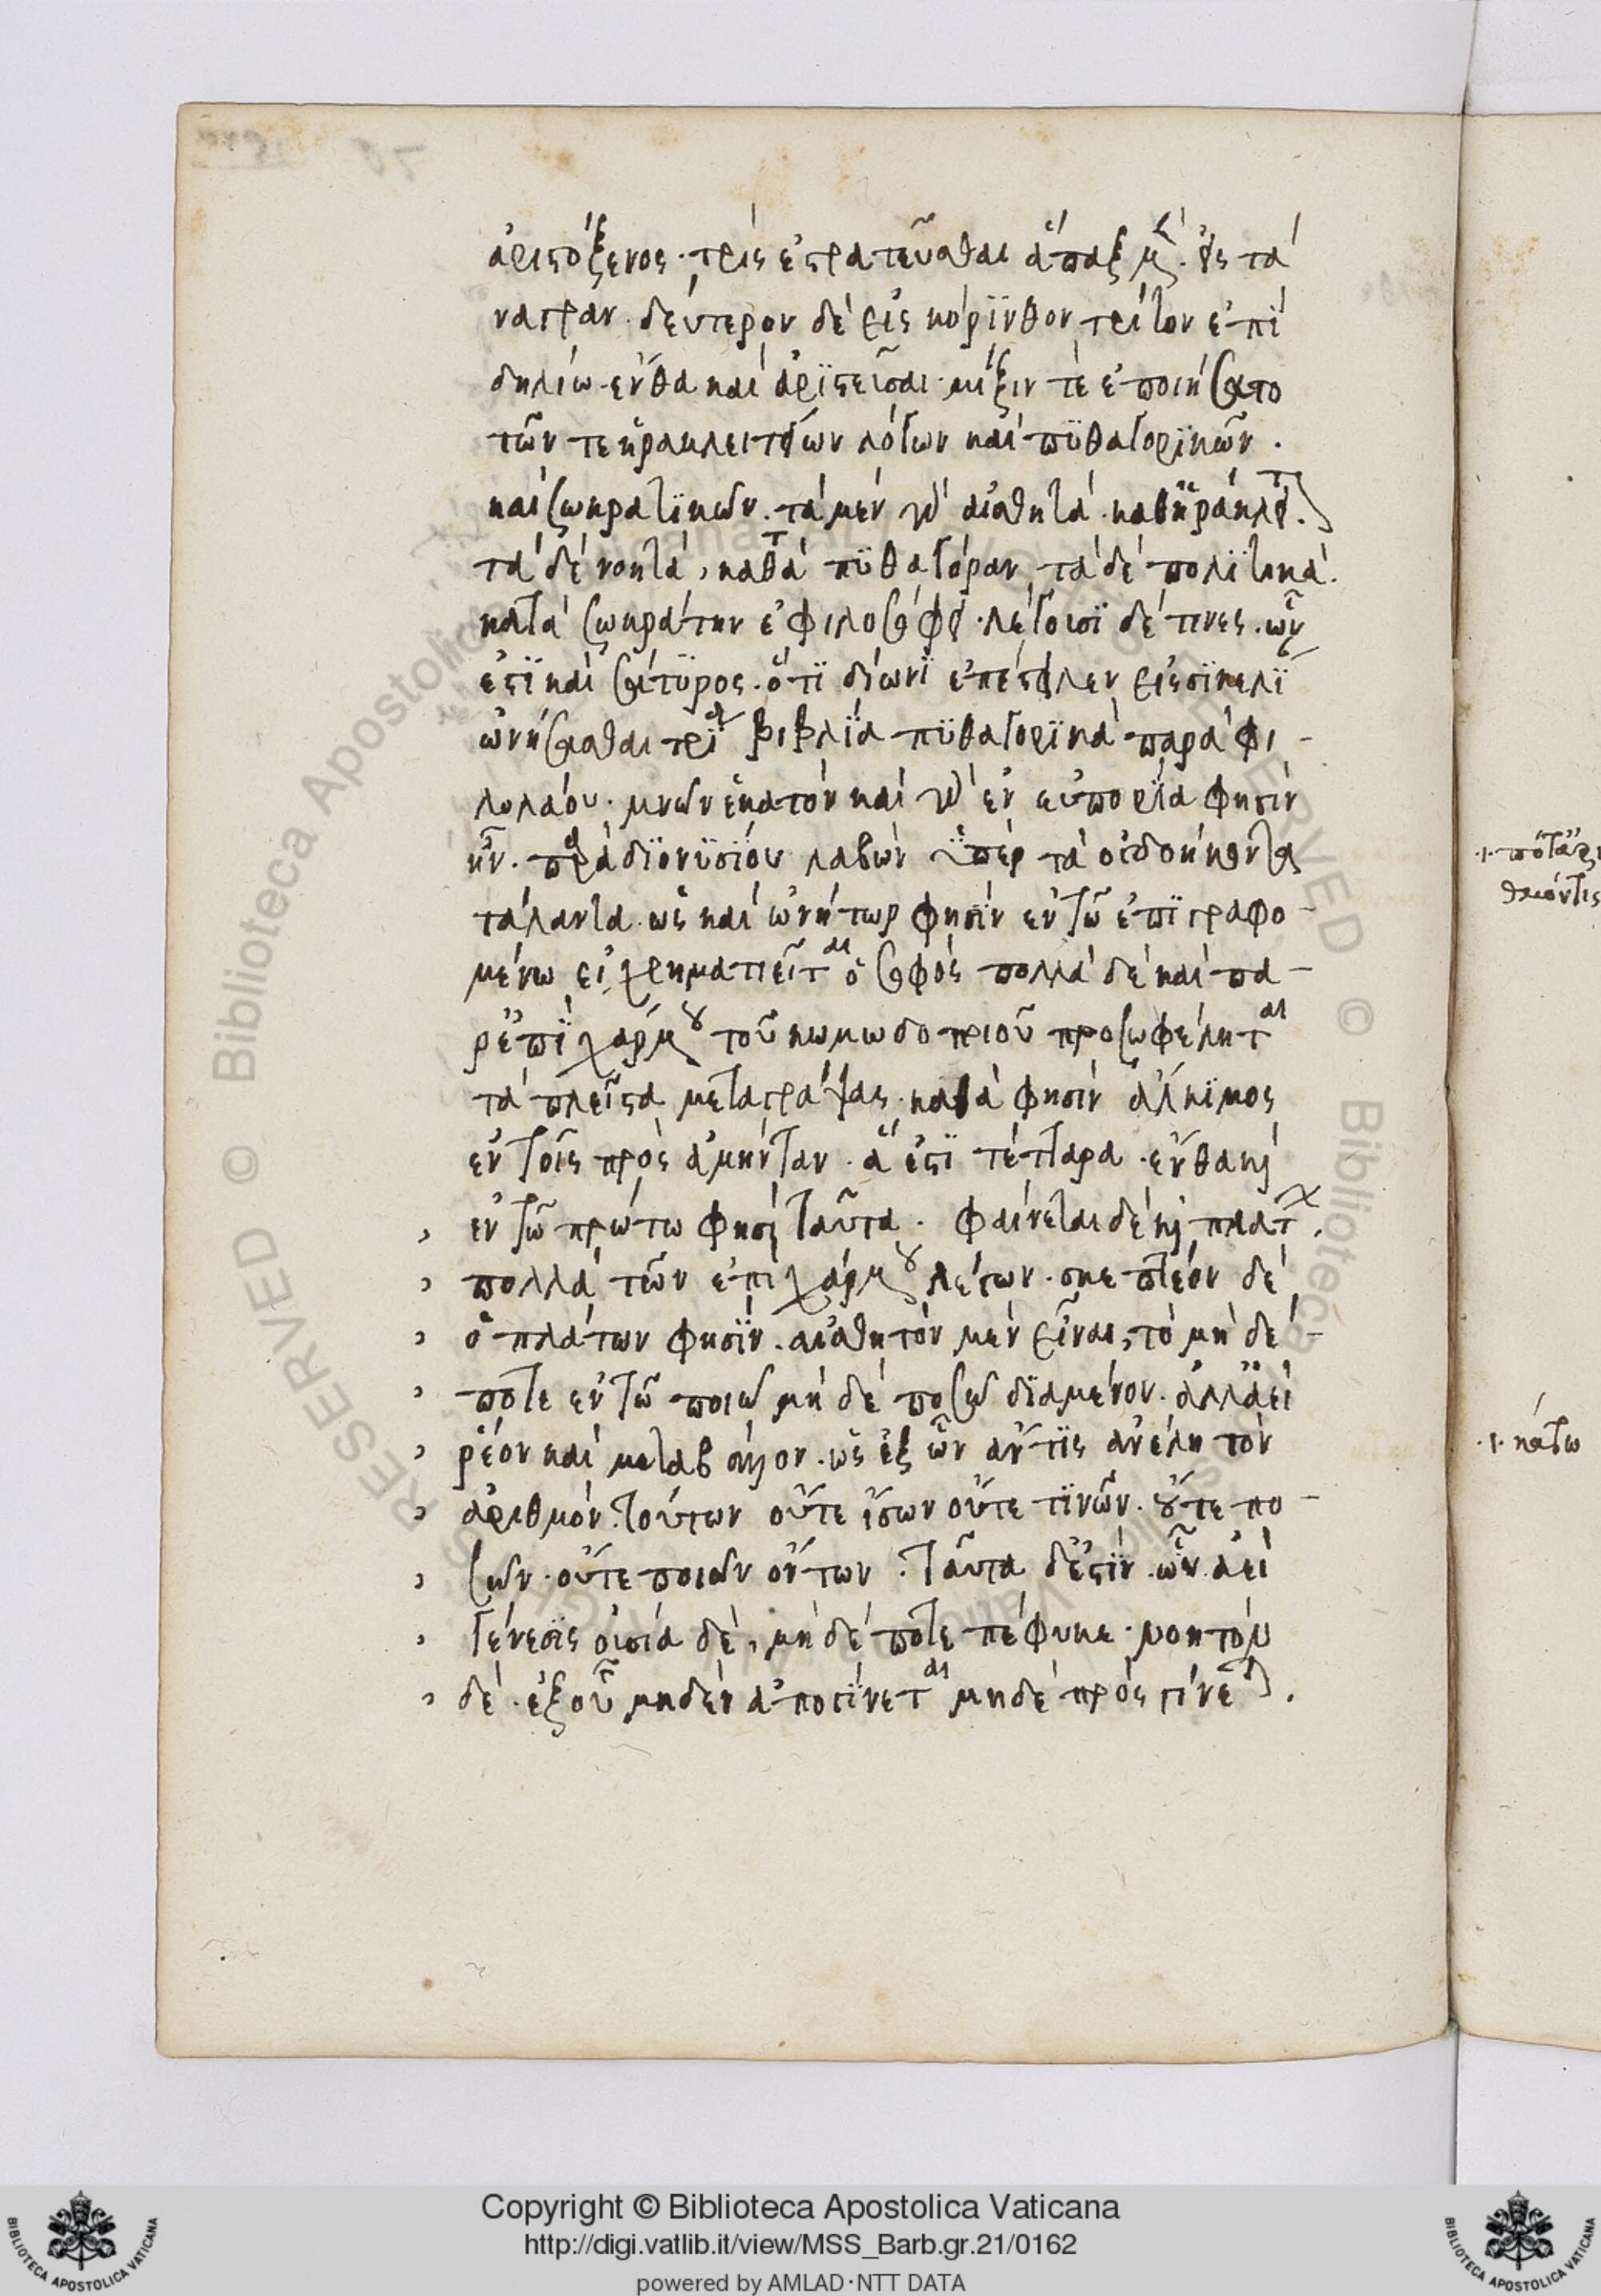 ἀριστόξενος· τρὶς ἐστρατεῦσθαι ἅπαξ μὲν· εἰς τά
ναγραν· δεύτερον δὲ εἰς κόρϊνθον τρίτον ἐπὶ
δηλίω· ἔνθα καὶ ἀρϊστεῦσαι· μίξιν τὲ ἐποιήσατο
τῶν τε ἡρακλειτείων λόγων καὶ πϋθαγορϊκῶν·
καὶ σωκρατϊκῶν· τὰ μὲν γὰρ αἰσθητὰ· καθ' ἡράκλειτον·
τὰ δὲ νοητὰ, κατὰ πϋθαγόραν τὰ δὲ πολϊτικὰ·
κατὰ σωκράτην ἐφιλοσόφει· λέγουσϊ δέ τινες· ὧν
ἐστϊ καὶ σάτϋρος· ὅτϊ δίωνϊ ἐπέστειλεν εἰς σϊκελϊ
ὠνήσασθαι τρία βιβλϊα πϋθαγορϊκὰ παρὰ φι-
λολάου· μνῶν ἑκατὸν καὶ γὰρ ἐν εὐπορία φησὶν
ἦν· παρὰ διονϋσϊου λαβὼν ὑπὲρ τὰ ὀγδοήκοντα
τάλαντα· ὡς καὶ ὀνήτωρ φησὶν ἐν τῶ ἐπϊγραφο-
μένω εἰ χρηματιεῖται ὁ σοφός πολλὰ δὲ καὶ πα-
ρ' ἐπϊχάρμου τοῦ κωμωδοποιοῦ προσωφέληται
τὰ πλεῖστα μεταγράψας· καθά φησιν ἄλκϊμος
ἐν τοῖς πρὸς ἀμήνταν· ἅ ἐστϊ τέτταρα· ἔνθα καὶ
, ἐν τῶ πρώτω φησὶ ταῦτα· φαίνεται δὲ καὶ πλάτων·
, πολλὰ τῶν ἐπιχάρμου λέγων· σκεπτέον δὲ
, ὁ πλάτων φησϊν· αἰσθητὸν μὲν εἶναι, τὸ μὴ δέ-
, ποτε ἐν τῶ ποιῶ μὴ δὲ ποσῶ διαμένον· ἀλλ' ἀεὶ
, ῥέον καὶ μεταβάλλον· ὡς ἐξ ὧν ἄν τϊς ἀνέλη τὸν
, ἀριθμόν· τούτων οὔτε ἴσων οὔτε τϊνῶν· οὔτε πο-
, σῶν· οὔτε ποιῶν ὄντων· ταῦτα δ' ἐστϊν· ὧν ἀεὶ
, γένεσϊς οὐσία δὲ, μὴ δέ ποτε πέφυκε· νοητὸν
, δὲ· ἐξ οὗ μηδὲν ἀπογίνεται μηδὲ προσγίνεται·
·ι· κάτω